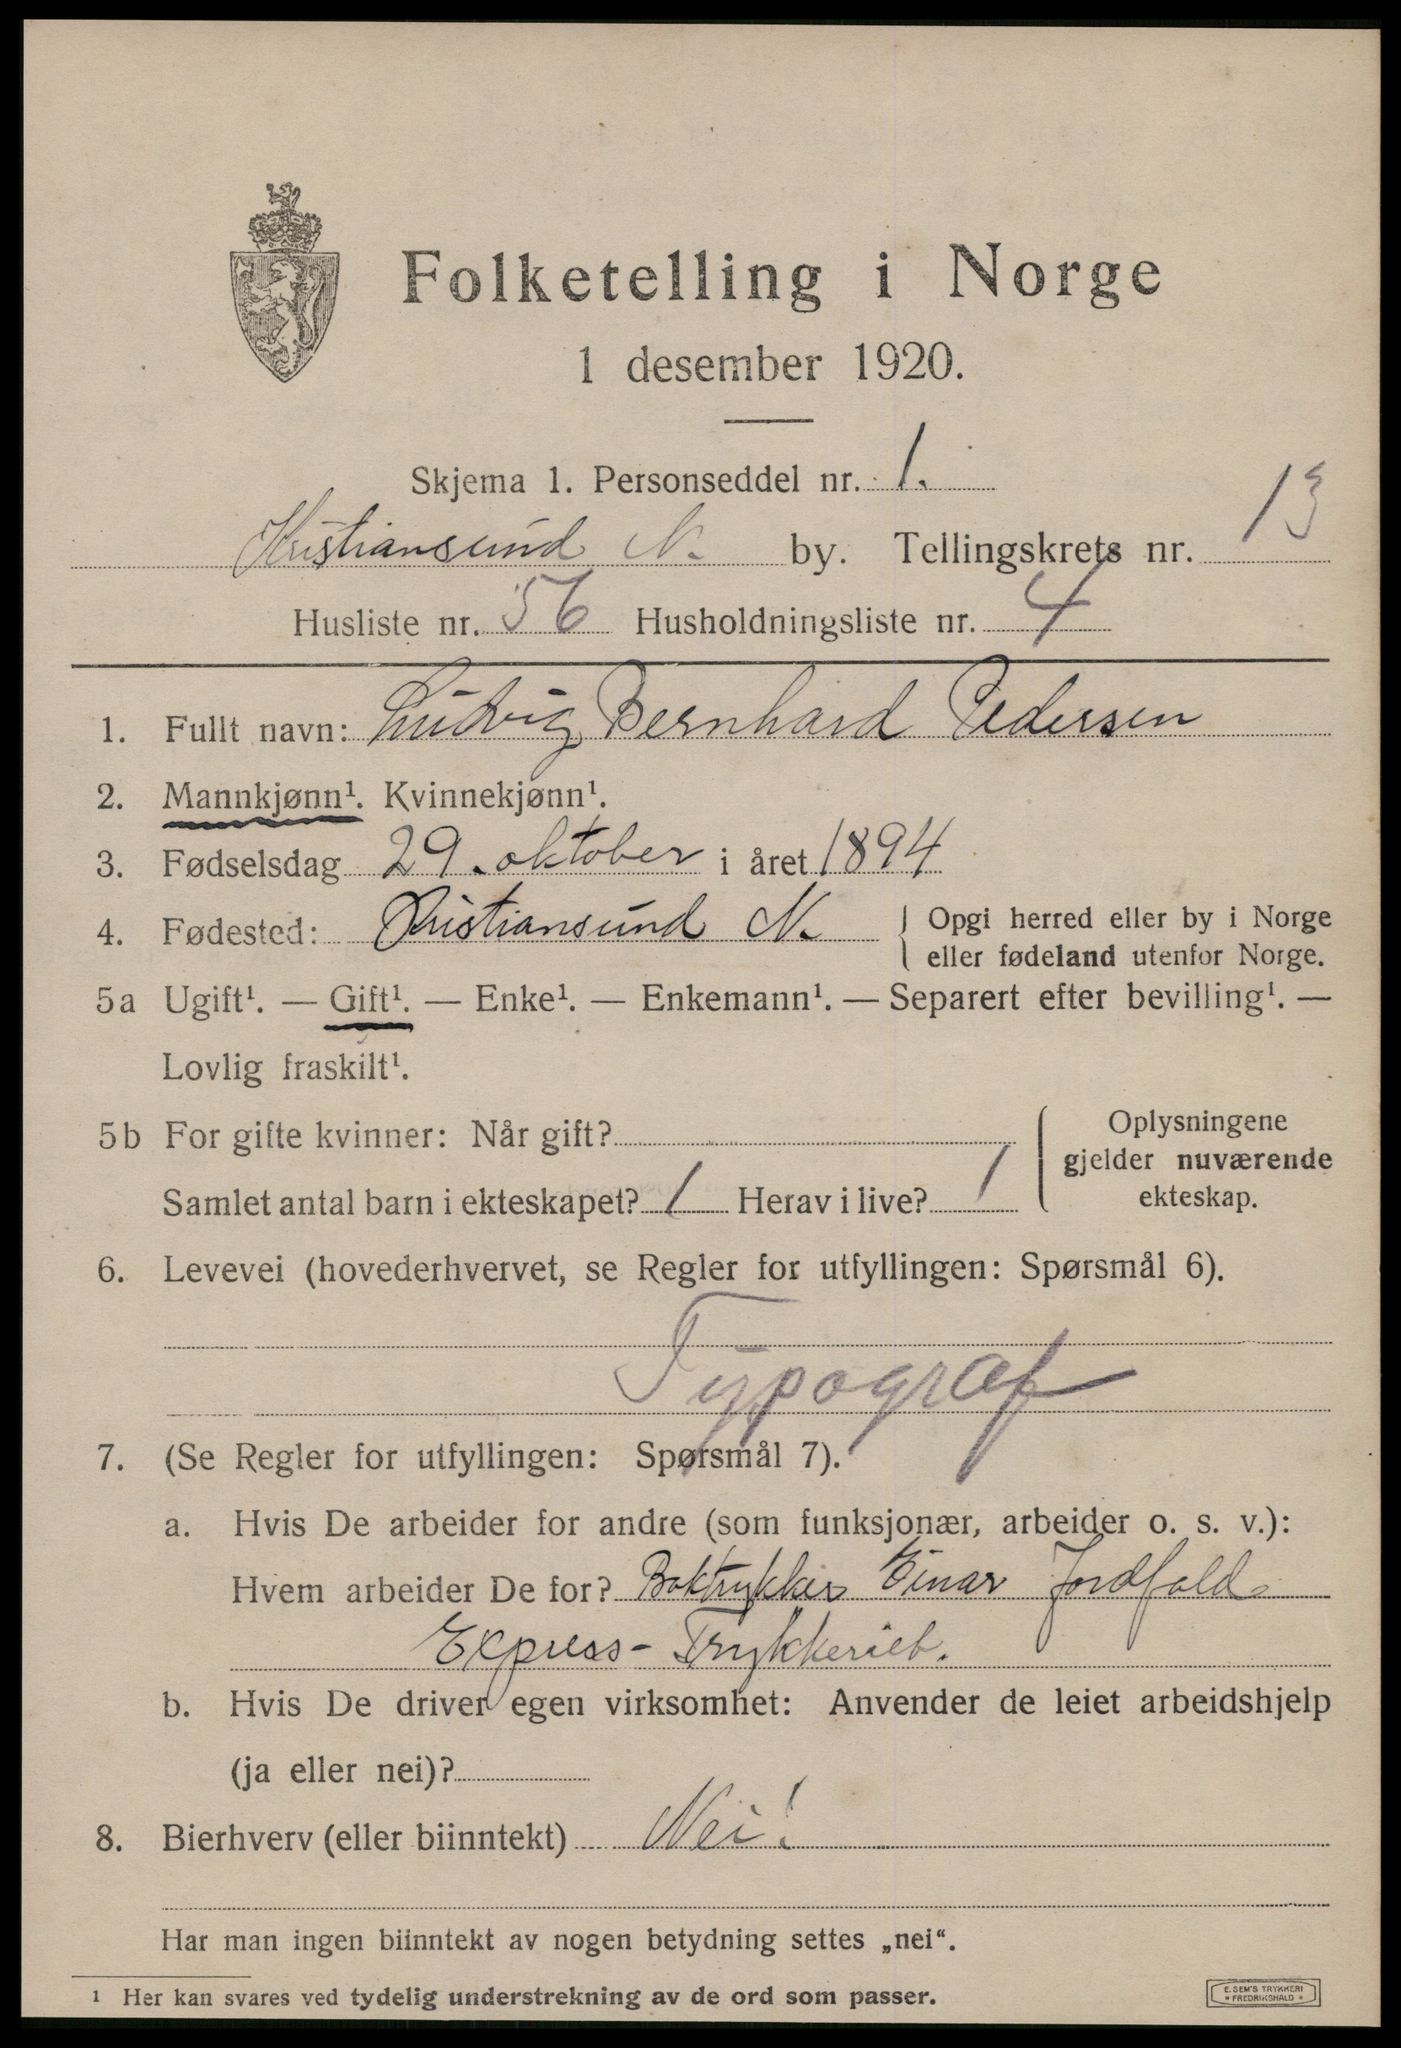 Folketelling i Norge
1 desember 1920.
Skjema 1. Personseddel nr. 1.
Kristiansund N. by. Tellingskrets nr. 13
Husliste nr. 56 Husholdningsliste nr. 4
1. Fullt navn: Ludvig Bernhard Pedersen
2. Mannkjønn¹. Kvinnekjønn¹.
3. Fødselsdag 29. oktober i året 1894
4. Fødested: Kristiansund N. Opgi herred eller by i Norge
eller fødeland utenfor Norge.
5a Ugift¹. — Gift¹. — Enke¹. — Enkemann¹. — Separert efter bevilling¹. —
Lovlig fraskilt¹.
5b For gifte kvinner: Når gift?
Samlet antal barn i ekteskapet? 1 Herav i live? 1
Oplysningene
gjelder nuværende
ekteskap.
6. Levevei (hovederhvervet, se Regler for utfyllingen: Spørsmål 6).
Typograf
7. (Se Regler for utfyllingen: Spørsmål 7).
a. Hvis De arbeider for andre (som funksjonær, arbeider o. s. v.):
Hvem arbeider De for? Boktrykker Einar Jordfald
Express-Trykkeriet.
b. Hvis De driver egen virksomhet: Anvender de leiet arbeidshjelp
(ja eller nei)?
8. Bierhverv (eller biinntekt) Nei!
Har man ingen biinntekt av nogen betydning settes „nei“.
¹ Her kan svares ved tydelig understrekning av de ord som passer.
E. SEM'S TRYKKERI
* FREDRIKSHALD *